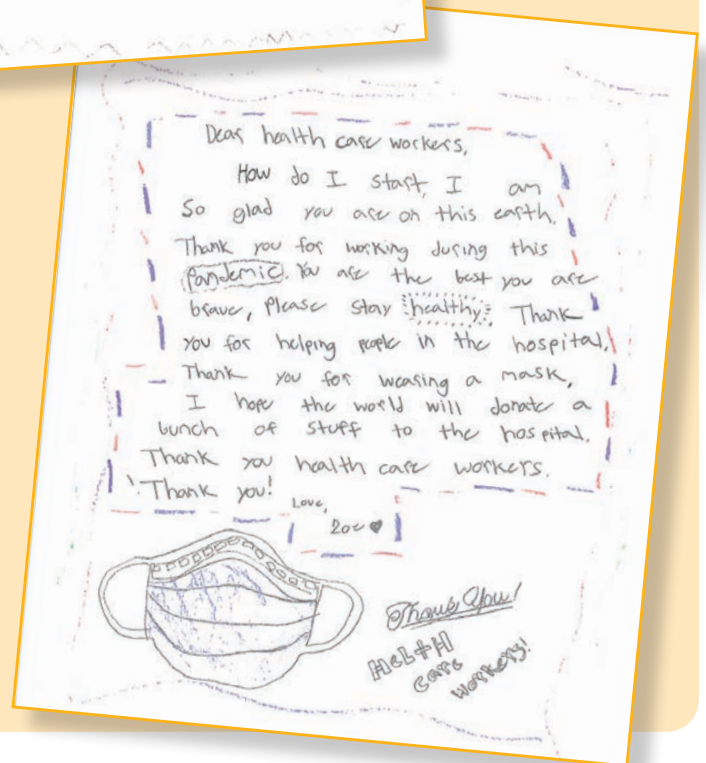 Dear health care workers,
How do I start, I am
So glad you are on this earth.
Thank you for working during this
Pandemic. You are the best you are
brave, Please stay healthy. Thank
you for helping people in the hospital.
Thank you for wearing a mask,
I hope the world will donate a
bunch of stuff to the hospital.
Thank you health care workers.
Thank you!
Love,
Zoe
Thank You!
HELTH
care
workers!